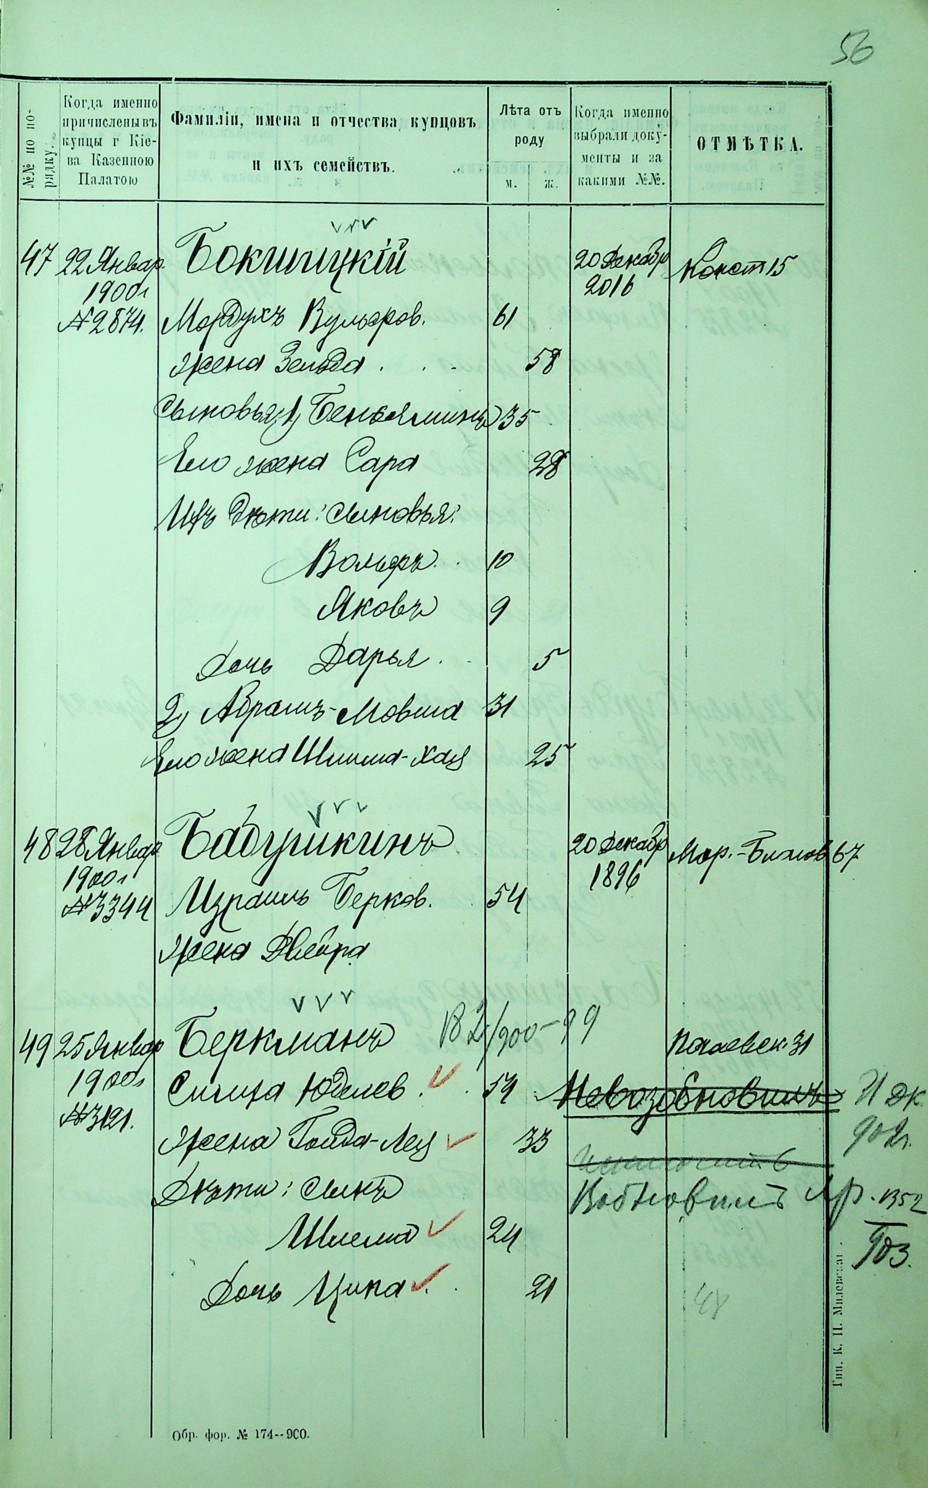 56
№№ по по-
рядку.
Когда именно
причисленъ въ
купцы г Кіе-
ва Казенною
Палатою
Фамиліи, имена и отчества купцовъ
и ихъ семействъ.
Лѣта отъ
роду
м. ж.
Когда именно
выбрали доку-
менты и за
какими №№.
ОТМѢТКА.
47 22 Январ. Бокшицкій 20 Декабр Конст 15
1900 г 2016
№2874. Мордухъ Вульфов. 61
жена Зельда . . 58
Сыновья, 1) Беньяминъ 35
Его жена Сара 28
Ихъ дѣти: сыновья:
Вольфъ . 10
Яковъ 9
Дочь Дарья . 5
2) Абрамъ-Мовша 31
Его жена Шлима-Хая 25
48 28 Январ Бабушкинъ 20 Декабр Мар.-Благов 67
1900 г 1896
№3344 Израиль Берков. 54
жена Двейра
49 25 Январ Беркманъ В2/300-99 Почаевск. 31
1900 г Симха Юделев. 54 Невозобновилъ 21 Дк.
902 г.
№3121. Жена Голда-Лея 33
Дѣти: сынъ Возобновилъ 1352
Шлема 24 903.
Дочь Ципа . 21
48
Тип. К. Н. Милевскаг.
Обр. фор. № 174--900.